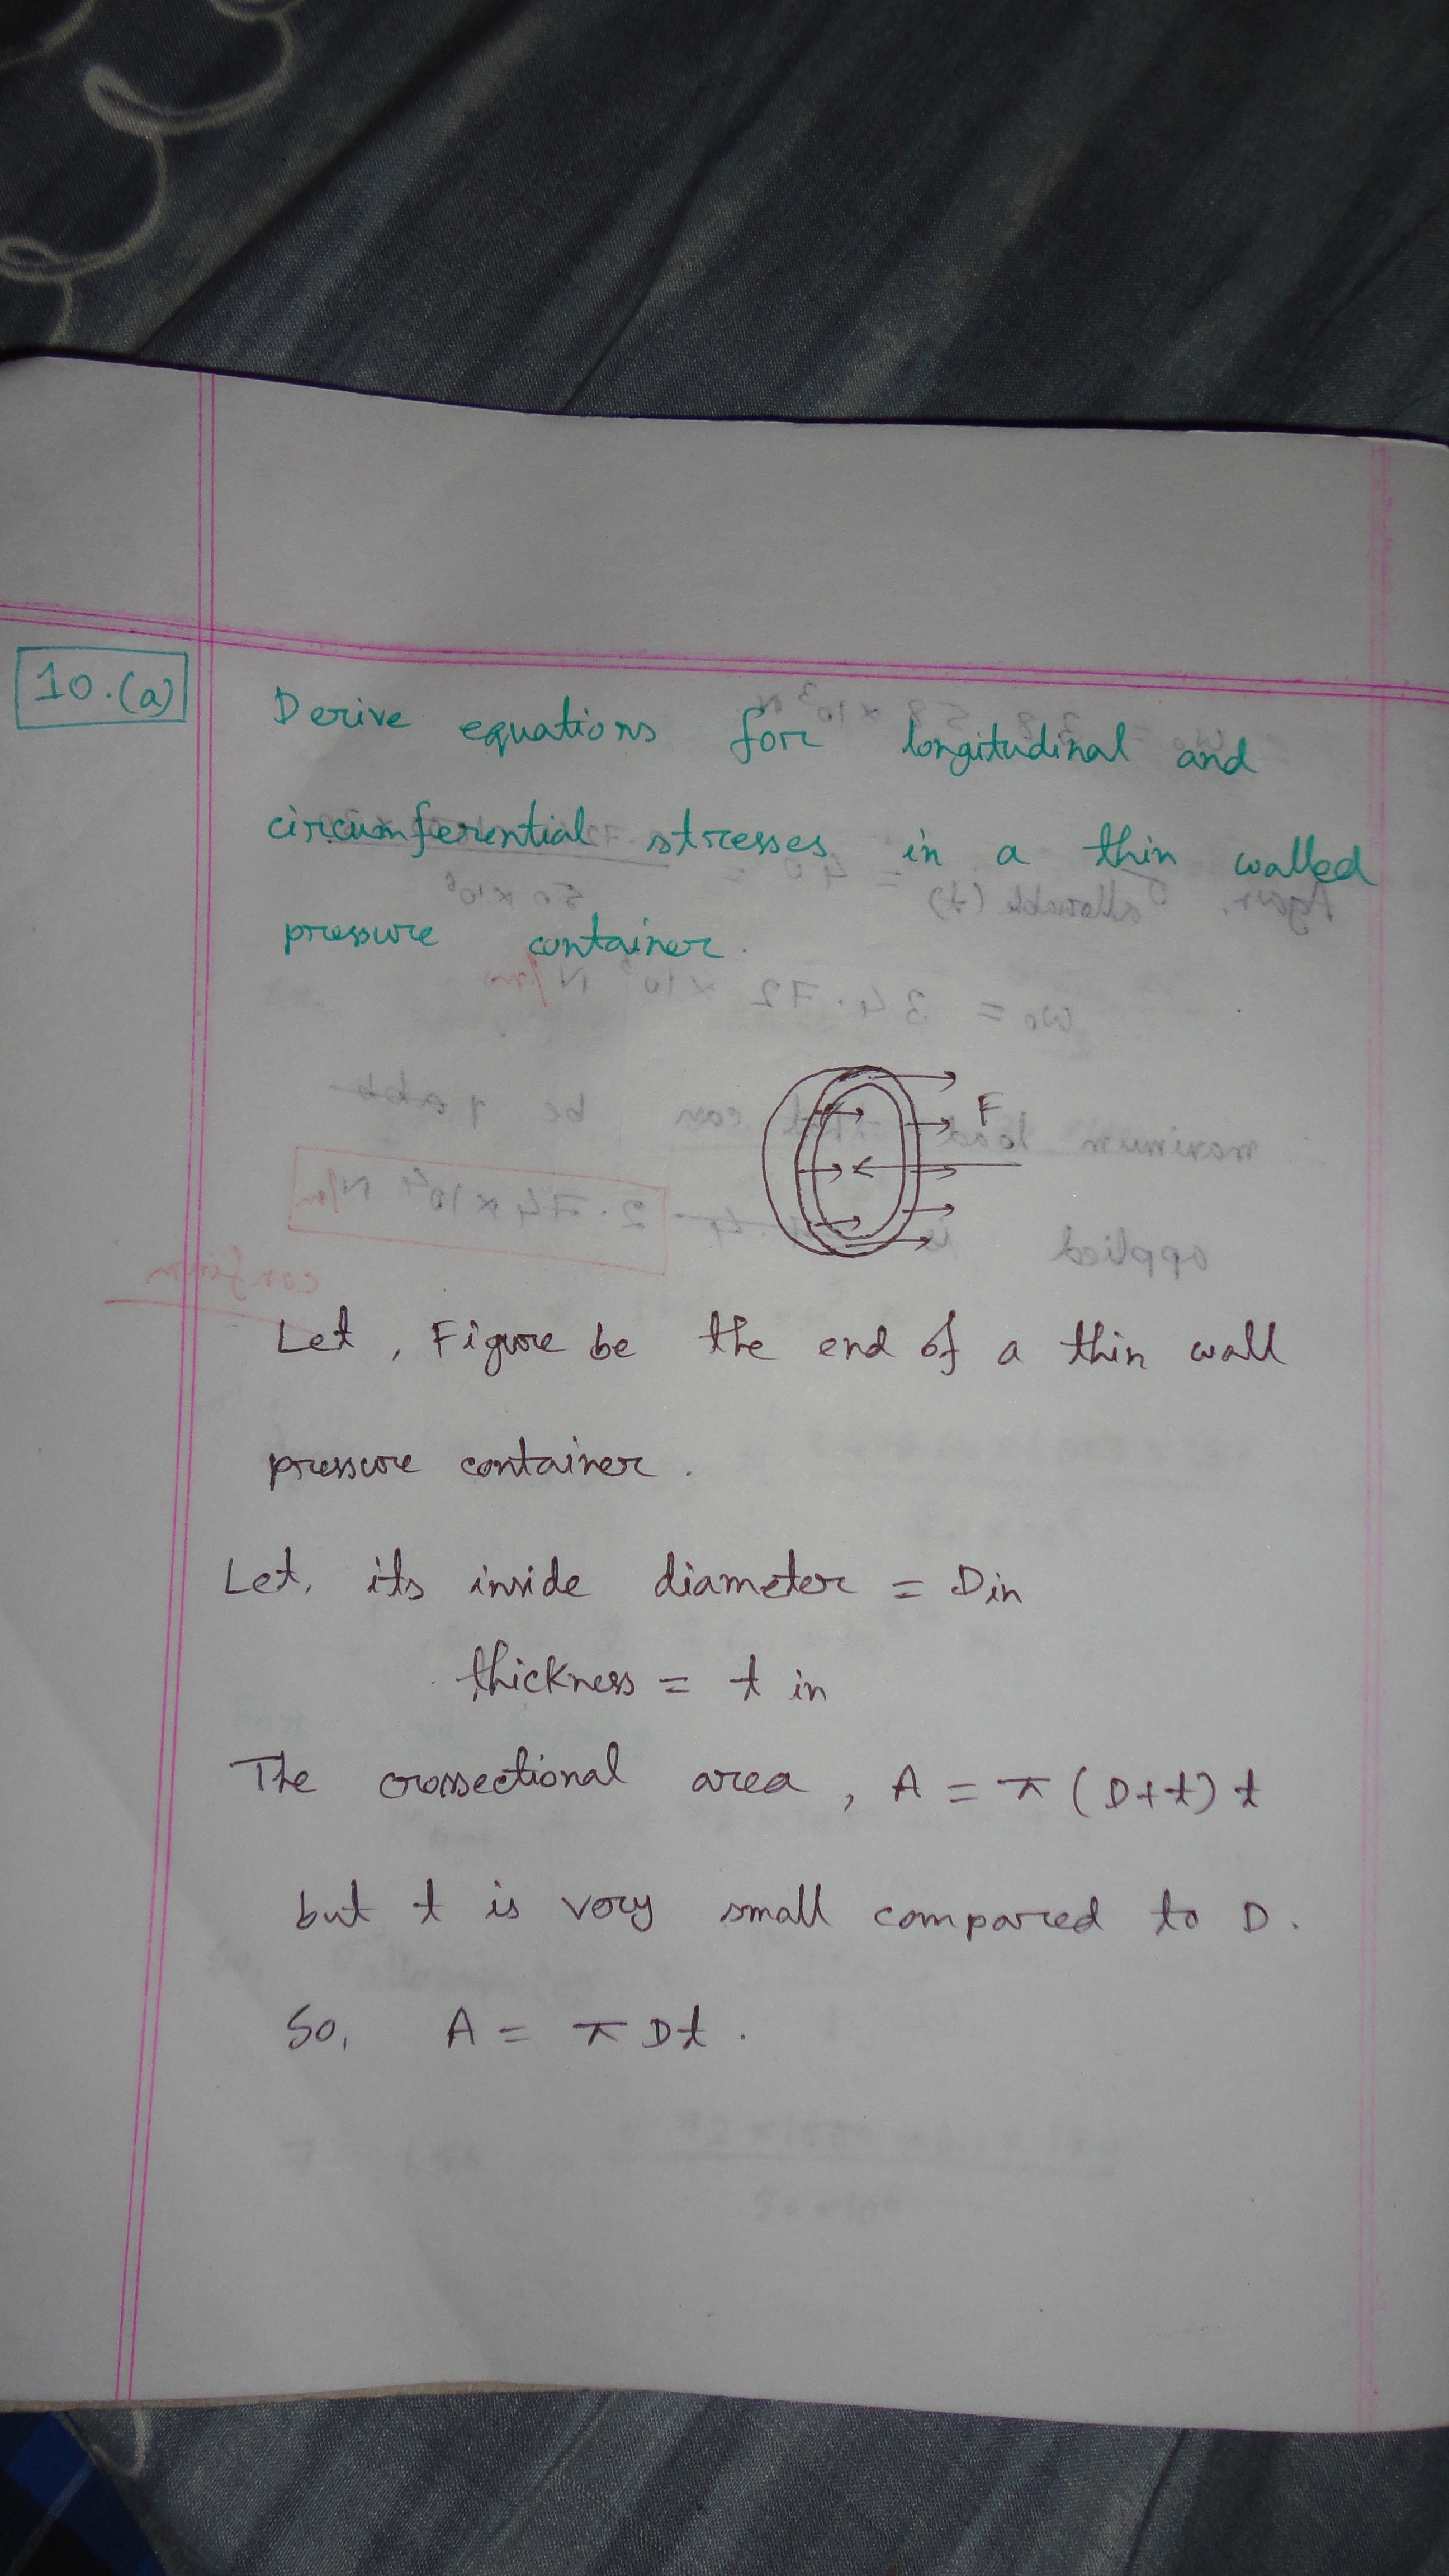 10.(a)
Derive equations for longitudinal and
circumferential stresses in a thin walled
pressure container.
F
Let, Figure be the end of a thin wall
pressure container.
Let, its inside diameter = D in
thickness = t in
The crossectional area, A = π (D+t) t
but t is very small compared to D.
So, A = π Dt.